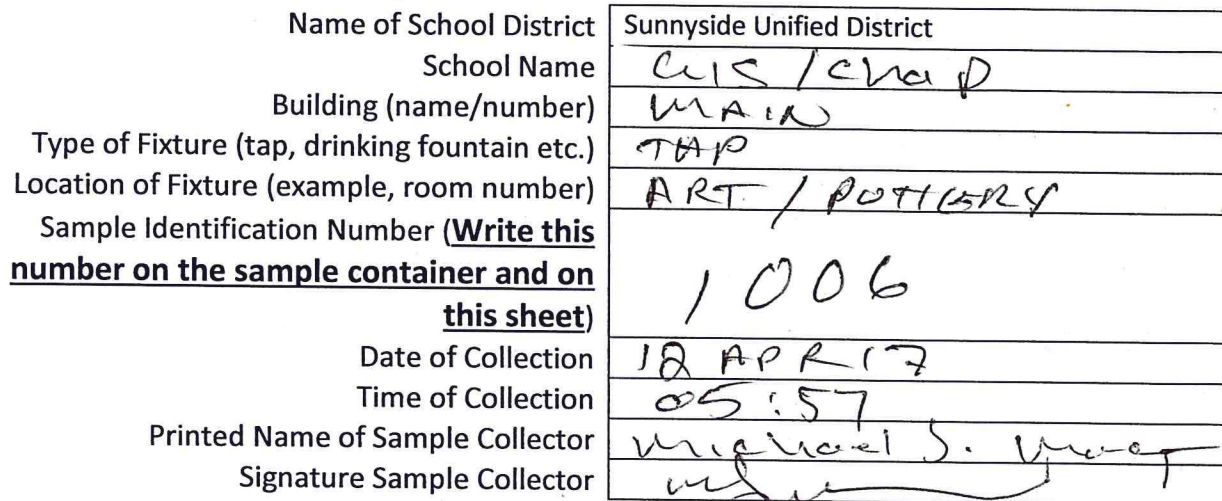 Name of School District Sunnyside Unified District
School Name / Chap
Building (name/number) MAIN
Type of Fixture (tap, drinking fountain etc.) TAP
Location of Fixture (example, room number) ART / POTTERY
Sample Identification Number (Write this
number on the sample container and on
this sheet) 1006
Date of Collection 12 APR 17
Time of Collection 05:57
Printed Name of Sample Collector Michael S.
Signature Sample Collector